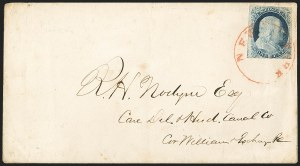 NEW
R. H. Nodyne Esq
Care Del. & Hud. Canal Co
Cor William & Exchange Pl